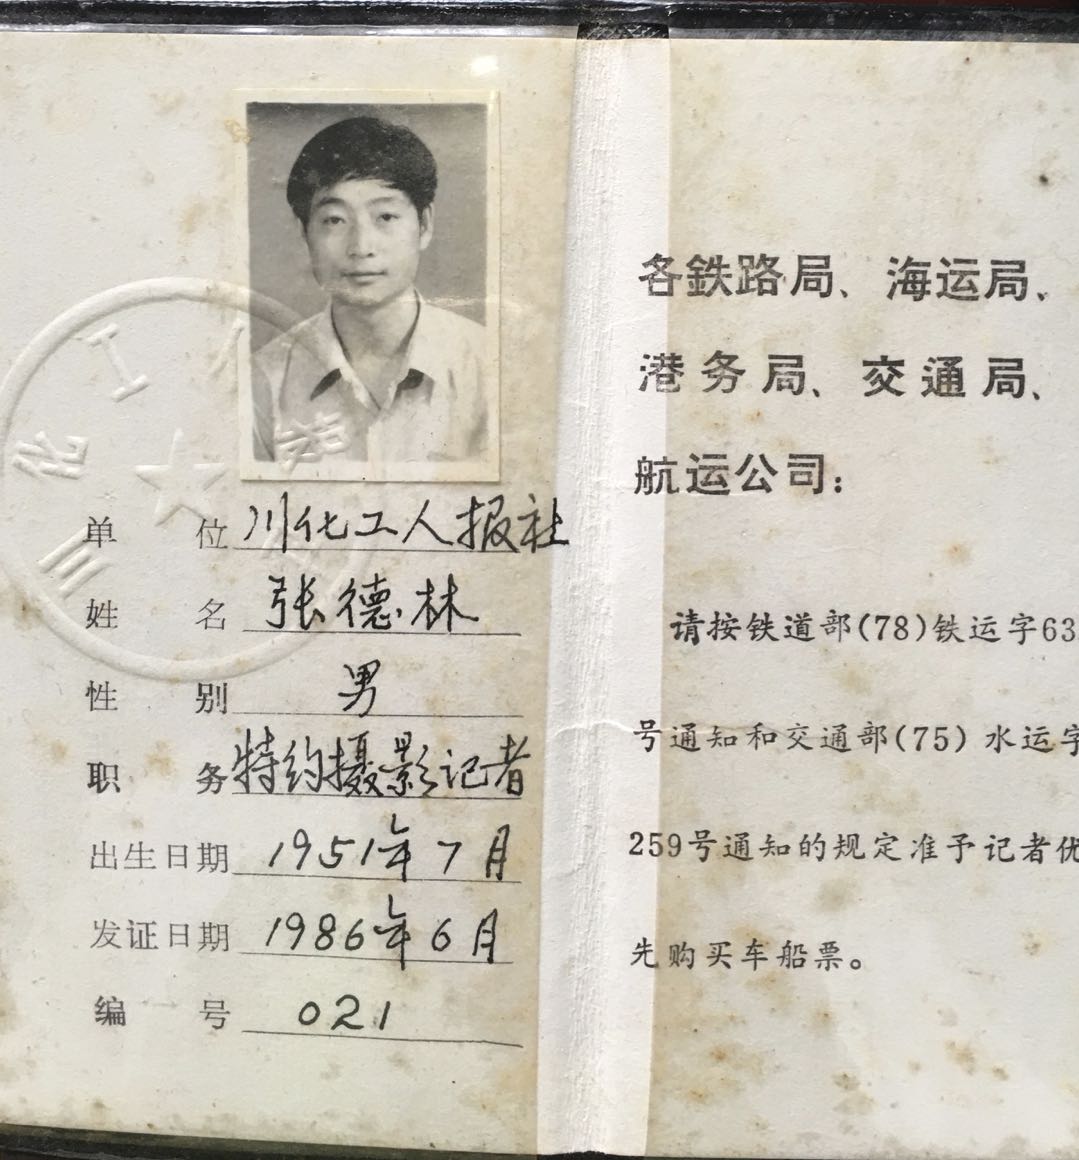 单位 川化工人报社
姓名 张德林
性别 男
职务 特约摄影记者
出生日期 1951年7月
发证日期 1986年6月
编号 021
各鉄路局、海运局、
港务局、交通局、
航运公司：
请按铁道部(78)铁运字63
号通知和交通部(75)水运字
259号通知的规定准予记者优
先购买车船票。
川化工人